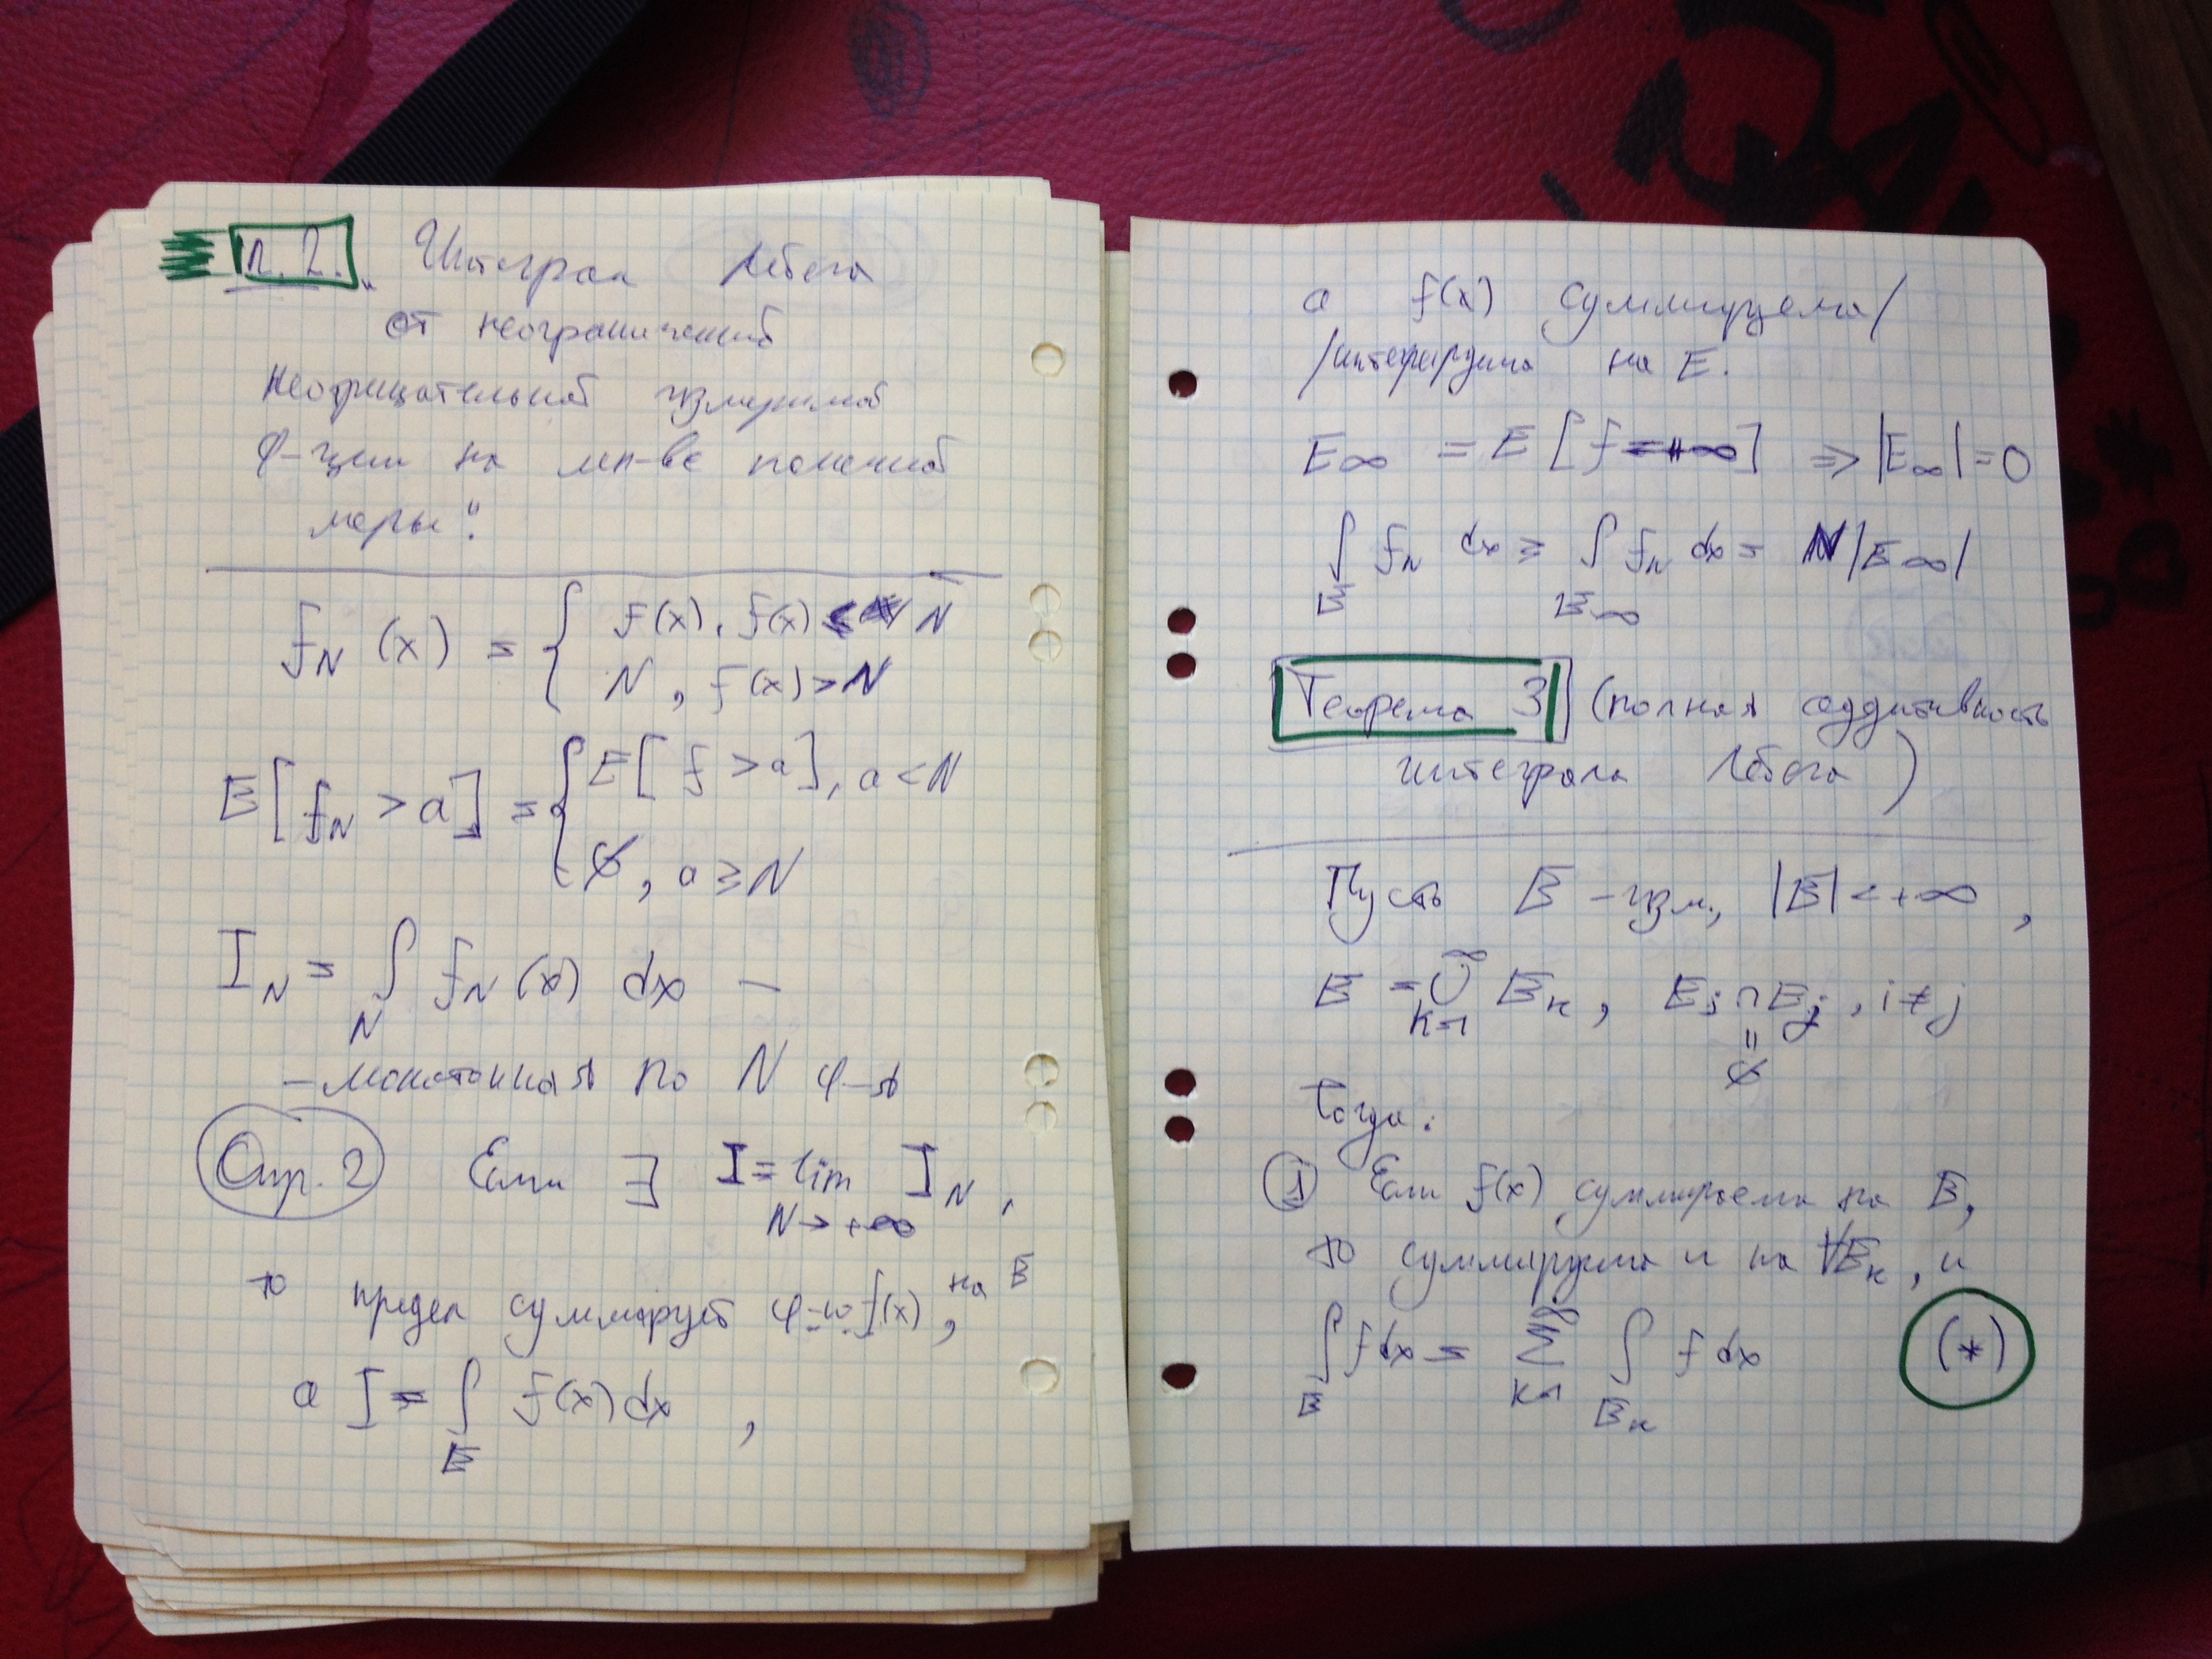 п. 2. „Интеграл Лебега
от неограниченной
неотрицательной измеримой
ф-ции на мн-ве конечной
меры“.
f_N (x) = { f(x), f(x) ≤ N
N, f(x) > N
E[f_N > a] = { E[f > a], a < N
∅, a ≥ N
I_N = ∫_N f_N (x) dx –
– монотонная по N ф-я
Опр. 2 Если ∃ I = lim_{N→+∞} I_N,
то предел суммирует ф-ю f(x), на E
а I = ∫_E f(x) dx,
а f(x) суммируема/
/интегрируема на E.
E_∞ = E[f = +∞] ⇒ |E_∞| = 0
∫_E f_N dx ≥ ∫_{E_∞} f_N dx = N|E_∞|
Теорема 3 (полная аддитивность
интеграла Лебега)
Пусть E – изм., |E| < +∞,
E = ∪_{k=1}^∞ E_k, E_i ∩ E_j, i ≠ j
=
∅
Тогда:
① Если f(x) суммируема на E,
то суммируема и на ∀E_k, и
∫_E f dx = Σ_{k=1}^∞ ∫_{E_k} f dx (*)